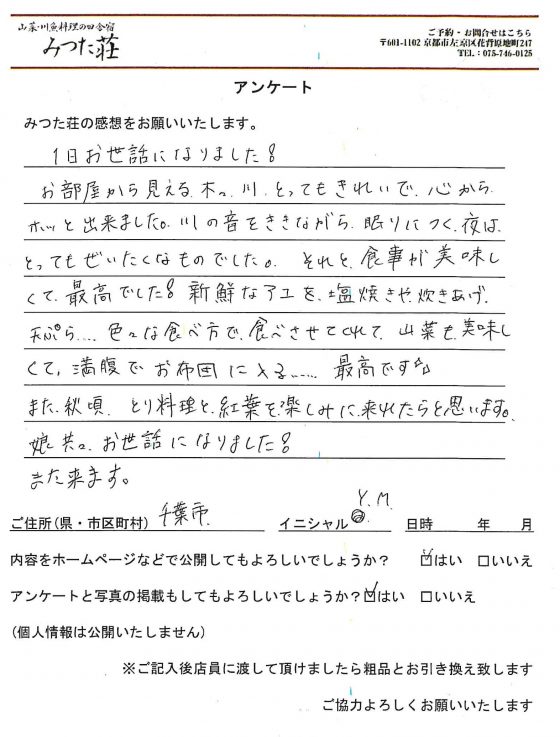 山菜・川魚料理の田舎宿
みつた荘
ご予約・お問合せはこちら
〒601-1102 京都市左京区花背原地町247
TEL：075-746-0125
アンケート
みつた荘の感想をお願いいたします。
1日お世話になりました!
お部屋から見える、木々、川、とってもきれいで、心から
ホッと出来ました。川の音をききながら、眠りにつく、夜は、
とってもぜいたくなものでした。 それと、食事が美味し
くて、最高でした! 新鮮なアユを、塩焼きや炊きあげ、
天ぷら.... 色々な食べ方で、食べさせてくれて、山菜も、美味し
くて、満腹でお布団に入る...... 最高です☆
また、秋頃、とり料理と、紅葉を楽しみに、来れたらと思います。
娘共々、お世話になりました!
また来ます。
ご住所(県・市区町村) 千葉市 イニシャル Y.M. 日時 年 月
内容をホームページなどで公開してもよろしいでしょうか? ☑はい □いいえ
アンケートと写真の掲載もしてもよろしいでしょうか? ☑はい □いいえ
(個人情報は公開いたしません)
※ご記入後店員に渡して頂けましたら粗品とお引き換え致します
ご協力よろしくお願いいたします